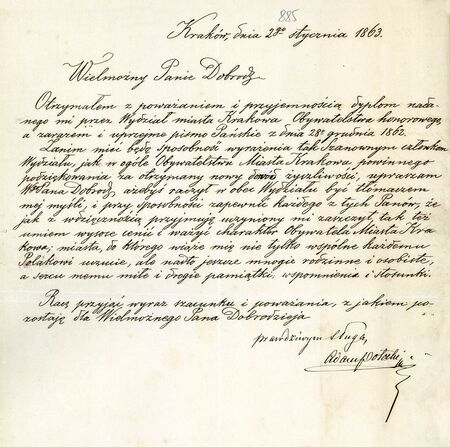 885
Kraków, dnia 23go stycznia 1863.
Wielmożny Panie Dobrodz.
Otrzymałem z poważaniem i przyjemnością dyplom nada-
nego mi przez Wydział miasta Krakowa Obywatelstwa honorowego,
a zarazem i uprzejme pismo Pańskie z dnia 28o grudnia 1862.
Zanim mieć będę sposobność wyrażenia tak Szanownym członkom
Wydziału, jak w ogóle Obywatelstwu Miasta Krakowa powinnego
podziękowania za otrzymany nowy dowód życzliwości, upraszam
WPana Dobrodz. ażebyś raczył w obec Wydziału być tłómaczem
mej myśli, i przy sposobności zapewnić każdego z tych Panów, że
jak z wdzięcznością przyjmuję uczyniony mi zaszczyt, tak też
umiem wysoce cenić i ważyć charakter Obywatela Miasta Kra-
kowa; miasta, do którego wiąże mię nie tylko wspólne każdemu
Polakowi uczucie, ale nadto jeszcze mnogie rodzinne i osobiste,
a sercu memu miłe i drogie pamiątki, wspomnienia i stosunki.
Racz przyjąć wyraz szacunku i poważania, z jakiem po-
zostaję dla Wielmożnego Pana Dobrodzieja
prawdziwym sługą,
Adam Potocki